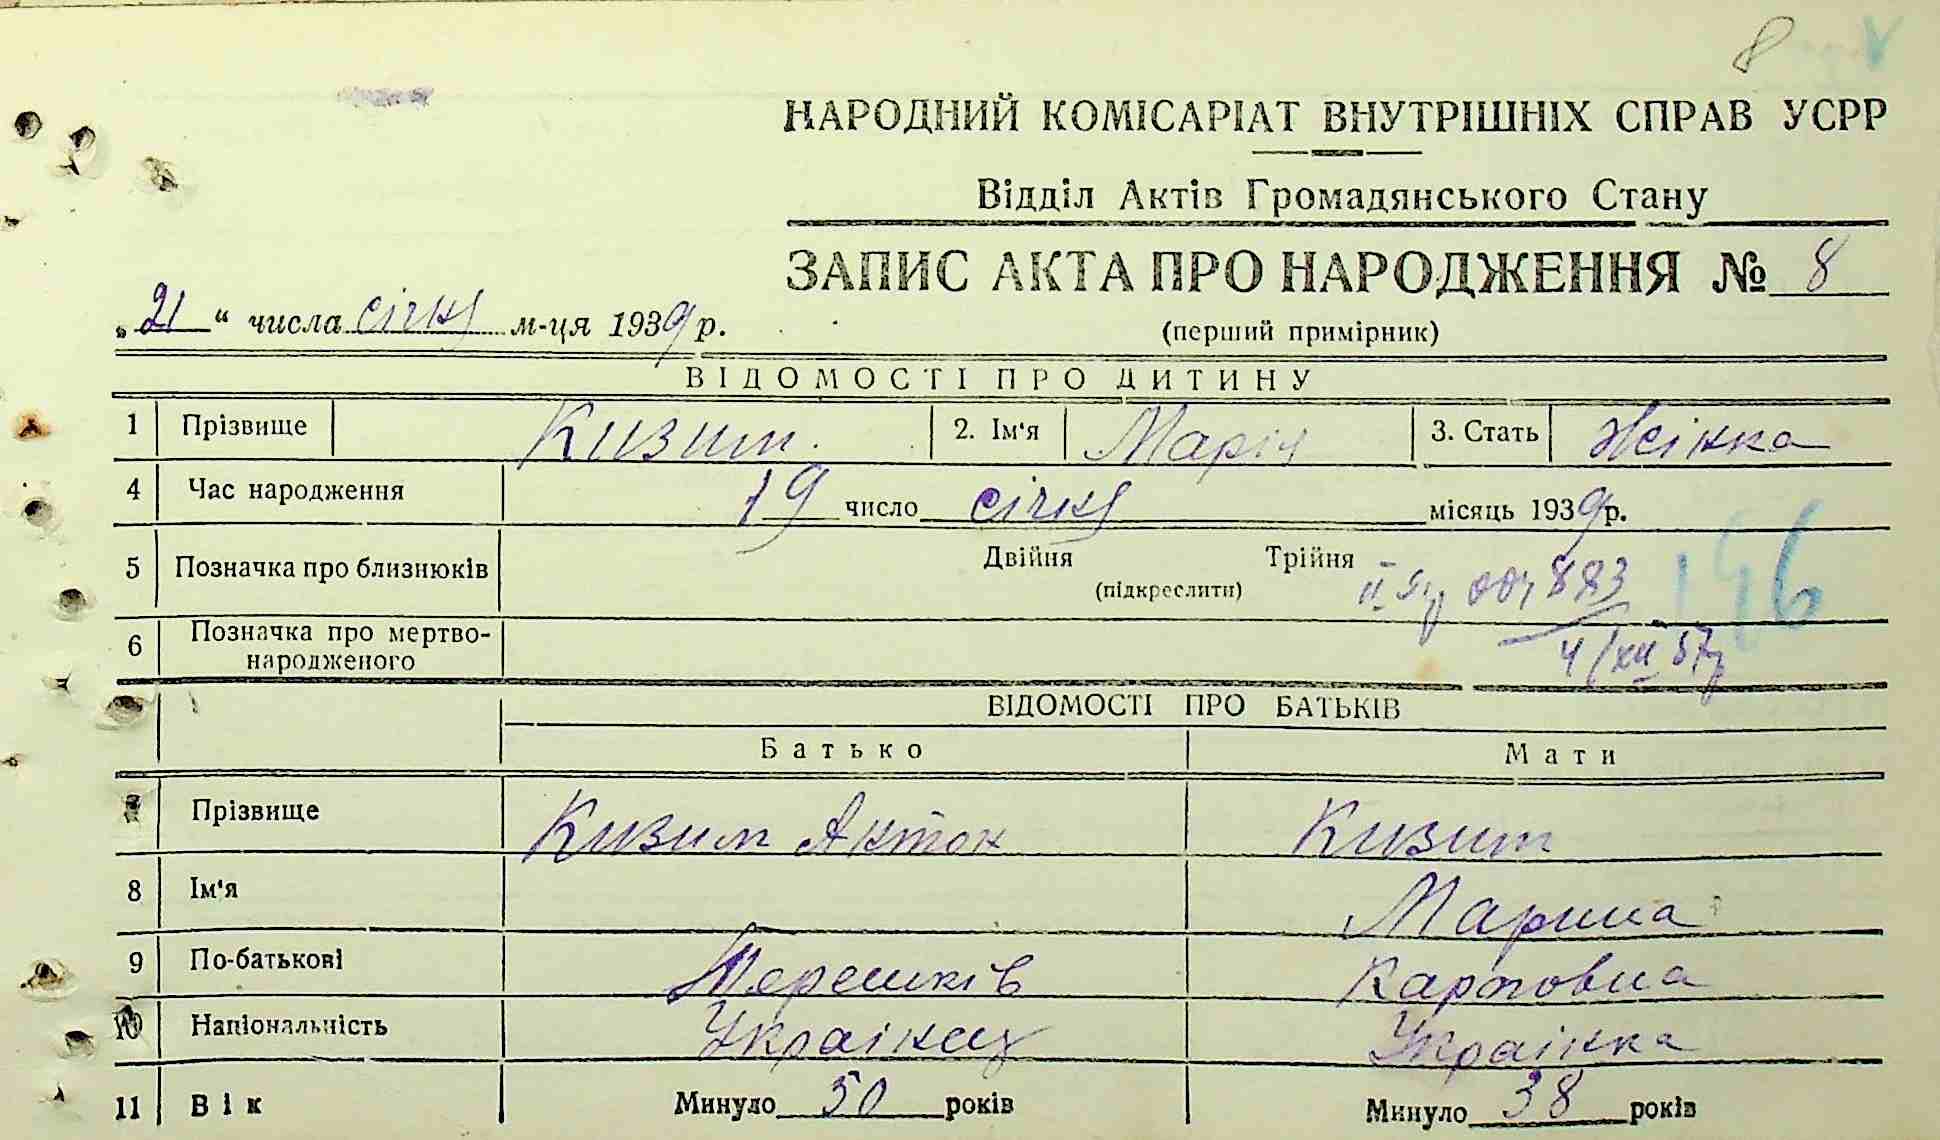 8
НАРОДНИЙ КОМІСАРІАТ ВНУТРІШНІХ СПРАВ УСРР
Відділ Актів Громадянського Стану
ЗАПИС АКТА ПРО НАРОДЖЕННЯ № 8
„21“ числа січня м-ця 1939 р.
(перший примірник)
ВІДОМОСТІ ПРО ДИТИНУ
1 Прізвище Кизим. 2. Ім'я Марія 3. Стать Жінка
4 Час народження 19 число січня місяць 1939 р.
5 Позначка про близнюків Двійня Трійня
(підкреслити)
883
196
6 Позначка про мертво-
народженого
4/XII 57р
ВІДОМОСТІ ПРО БАТЬКІВ
Батько Мати
7 Прізвище Кизим Антон Кизим
8 Ім'я Марина
9 По-батькові Терешків Карповна
10 Національність Українец Українка
11 Вік Минуло 50 років Минуло 38 років